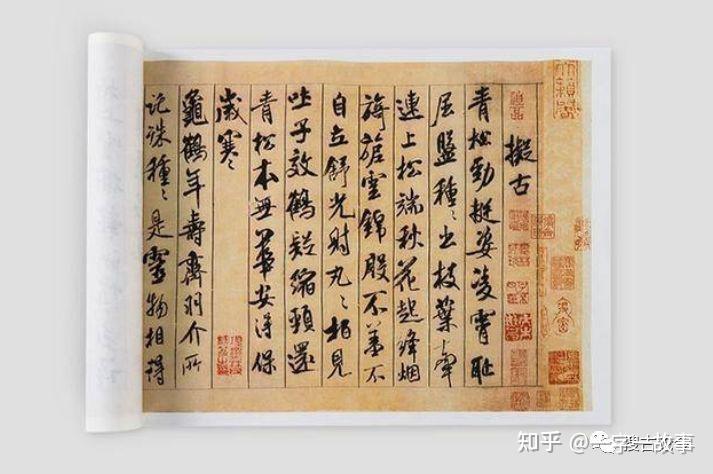 擬古
青松勁挺姿凌霄恥
屈盤種〻出枝葉牽
連上松端秋花起絳烟
旖旎雲錦殷不羞不
自立舒光射丸〻柏見
吐子效鶴疑縮頸還
青松本無華安得保
歲寒
龜鶴年壽齊羽介所
託殊種〻是靈物相得
知乎